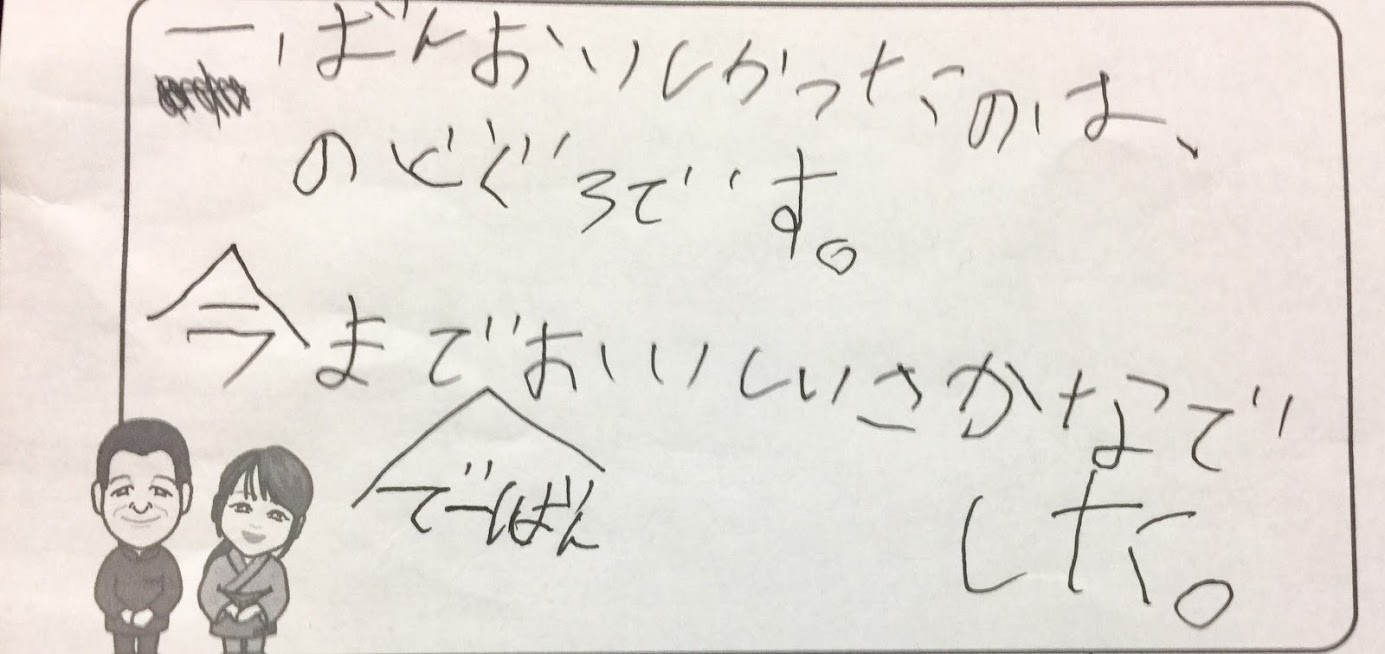 一ばんおいしかったのは、
のどぐろです。
今までおいしいさかなで
で一ばん
した。